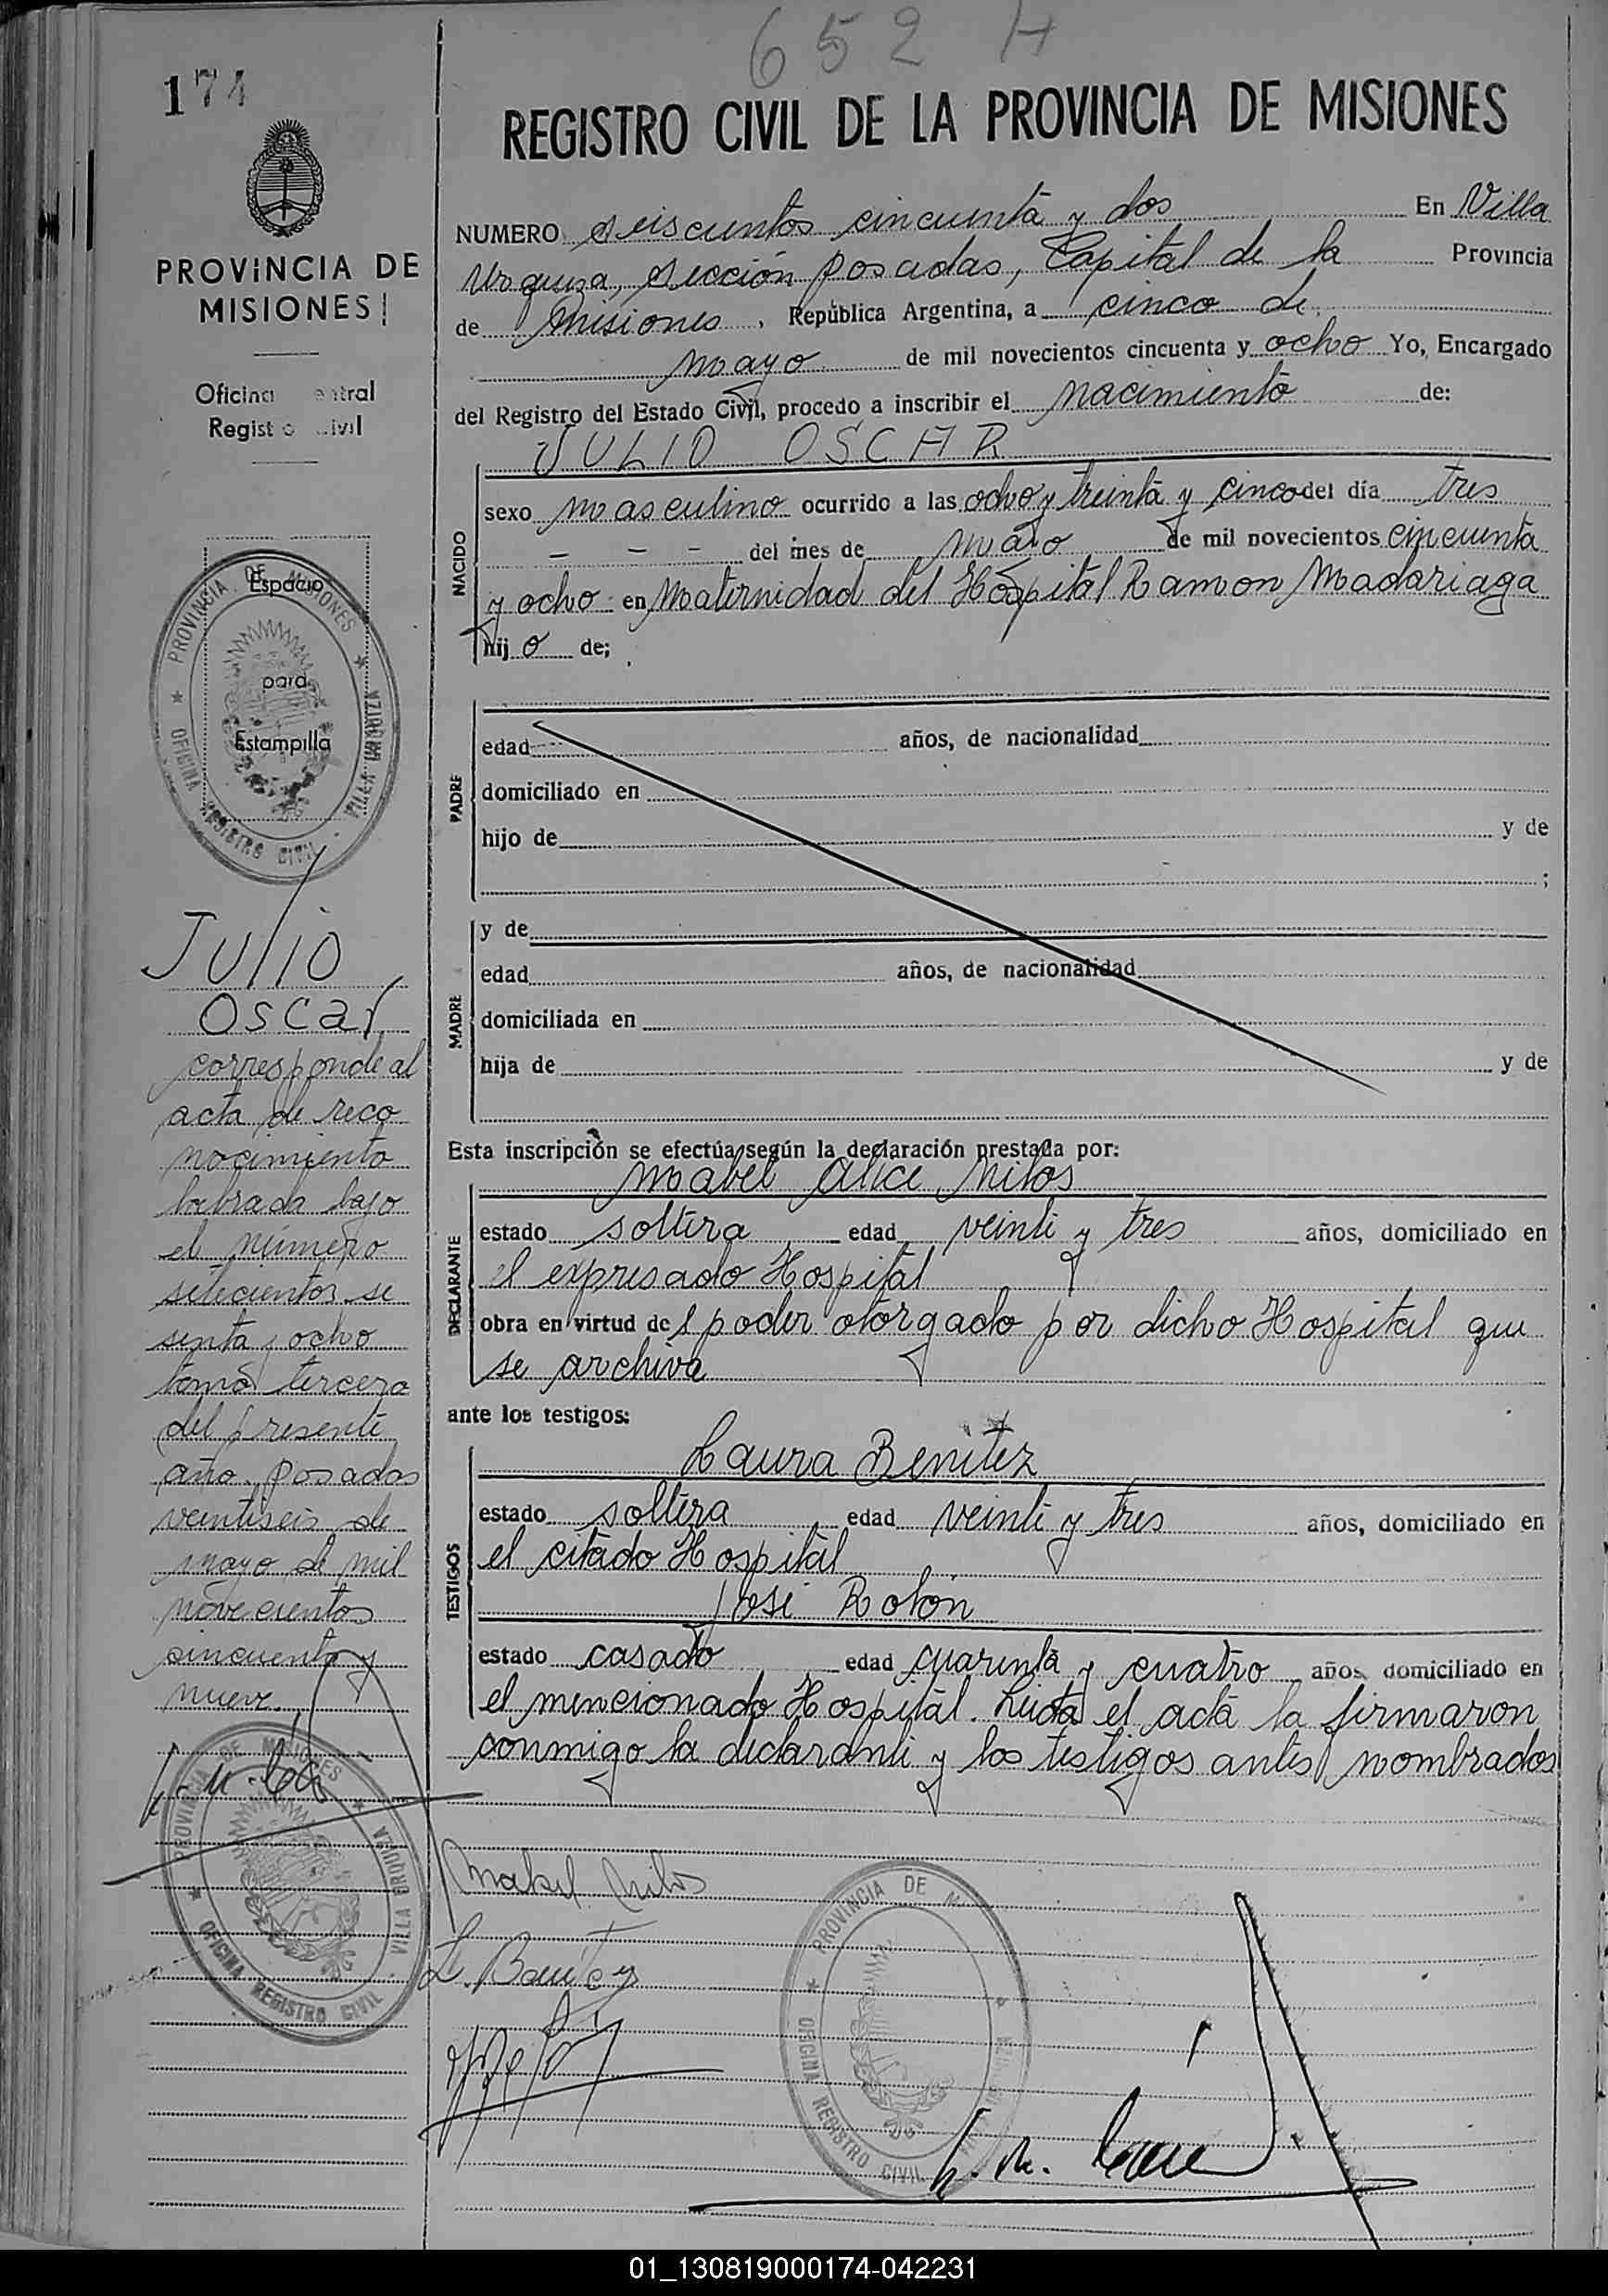 652 H
174
REGISTRO CIVIL DE LA PROVINCIA DE MISIONES
PROVINCIA DE
MISIONES
Oficina Central
Registro Civil
NUMERO seiscientos cincuenta y dos En Villa
Urquiza, sección Posadas, Capital de la Provincia
de Misiones, República Argentina, a cinco de
mayo de mil novecientos cincuenta y ocho Yo, Encargado
del Registro del Estado Civil, procedo a inscribir el nacimiento de:
JULIO OSCAR
NACIDO
sexo masculino ocurrido a las ocho y treinta y cinco del día tres
- - - del mes de mayo de mil novecientos cincuenta
y ocho en Maternidad del Hospital Ramon Madariaga
hijo de;
PADRE
edad años, de nacionalidad
domiciliado en
hijo de y de
;
MADRE
y de
edad años, de nacionalidad
domiciliada en
hija de y de
Esta inscripción se efectúa según la declaración prestada por:
Mabel Alice
DECLARANTE
estado soltera edad veinti y tres años, domiciliado en
el expresado Hospital
obra en virtud del poder otorgado por dicho Hospital que
se archiva
ante los testigos:
Laura Benitez
TESTIGOS
estado soltera edad veinti y tres años, domiciliado en
el citado Hospital
José Rolón
estado casado edad cuarenta y cuatro años, domiciliado en
el mencionado Hospital. Leida el acta la firmaron
conmigo la declarante y los testigos antes nombrados
Mabel
L. Benitez
Espacio
para
Estampilla
PROVINCIA DE MISIONES
OFICINA REGISTRO CIVIL
VILLA URQUIZA
Julio
Oscar
corresponde al
acta de reco
nocimiento
labrada bajo
el número
setecientos se
senta y ocho
tomo tercero
del presente
año. Posadas
veintiseis de
mayo de mil
novecientos
cincuenta y
nueve.
PROVINCIA DE MISIONES
OFICINA REGISTRO CIVIL
VILLA URQUIZA
PROVINCIA DE
OFICINA REGISTRO CIVIL
01_130819000174-042231